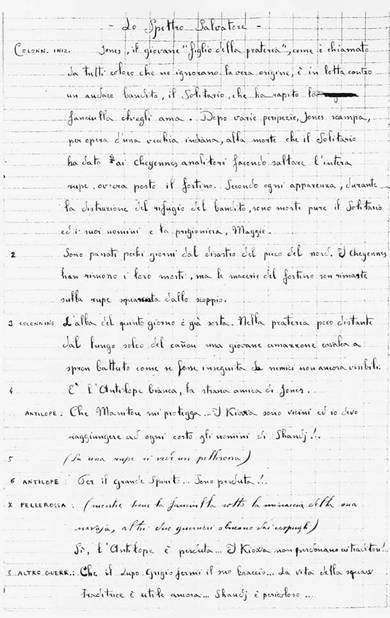 - Lo Spettro Salvatore -
COLONN. INIZ. Jones, il giovane "figlio della prateria", come è chiamato
da tutti coloro che ne ignorano la vera origine, è in lotta contro
un audace bandito, il Solitario, che ha rapito la
fanciulla ch'egli ama. Dopo varie peripezie, Jones scampa,
per opera d'una vecchia indiana, alla morte che il Solitario
ha dato ai Cheyennes assalitori facendo saltare l'intera
rupe ov'era posto il fortino. Secondo ogni apparenza, durante
la distruzione del rifugio del bandito, sono morti pure il Solitario
ed i suoi uomini e la prigioniera, Maggie.
2 Sono passati pochi giorni dal disastro del picco del nord. I Cheyennes
han rimosso i loro morti, ma le macerie del fortino son rimaste
sulla rupe squarciata dallo scoppio.
3 COLONNINO L'alba del quinto giorno è già sorta. Nella prateria poco distante
dal lungo solco del cañon una giovane amazzone cavalca a
spron battuto come se fosse inseguita da nemici non ancora visibili.
4 È l'Antilope bianca, la strana amica di Jones..
ANTILOPE: Che Manitou mi protegga... I Kiowa sono vicini ed io devo
raggiungere ad ogni costo gli uomini di Shandj!..
5 (Su una rupe si vede un pellerossa)
6 ANTILOPE: Per il Grande Spirito... Sono perduta!..
7 PELLEROSSA: (mentre tiene la fanciulla sotto la minaccia della sua
navaja, altri due guerrieri sbucano dai cespugli)
Sì, l'Antilope è perduta... I Kiowa non perdonano ai traditori!..
8 ALTRO GUERR.: Che il Lupo Grigio fermi il suo braccio... La vita della squaw
traditrice è utile ancora... Shandj è pericoloso...